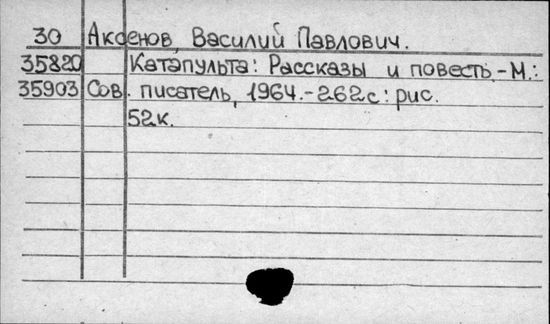 30 Аксенов, Василий Павлович.
35820 Катапульта: Рассказы и повесть.-М.:
35903 Сов. писатель, 1964.-262с: рис.
52к.